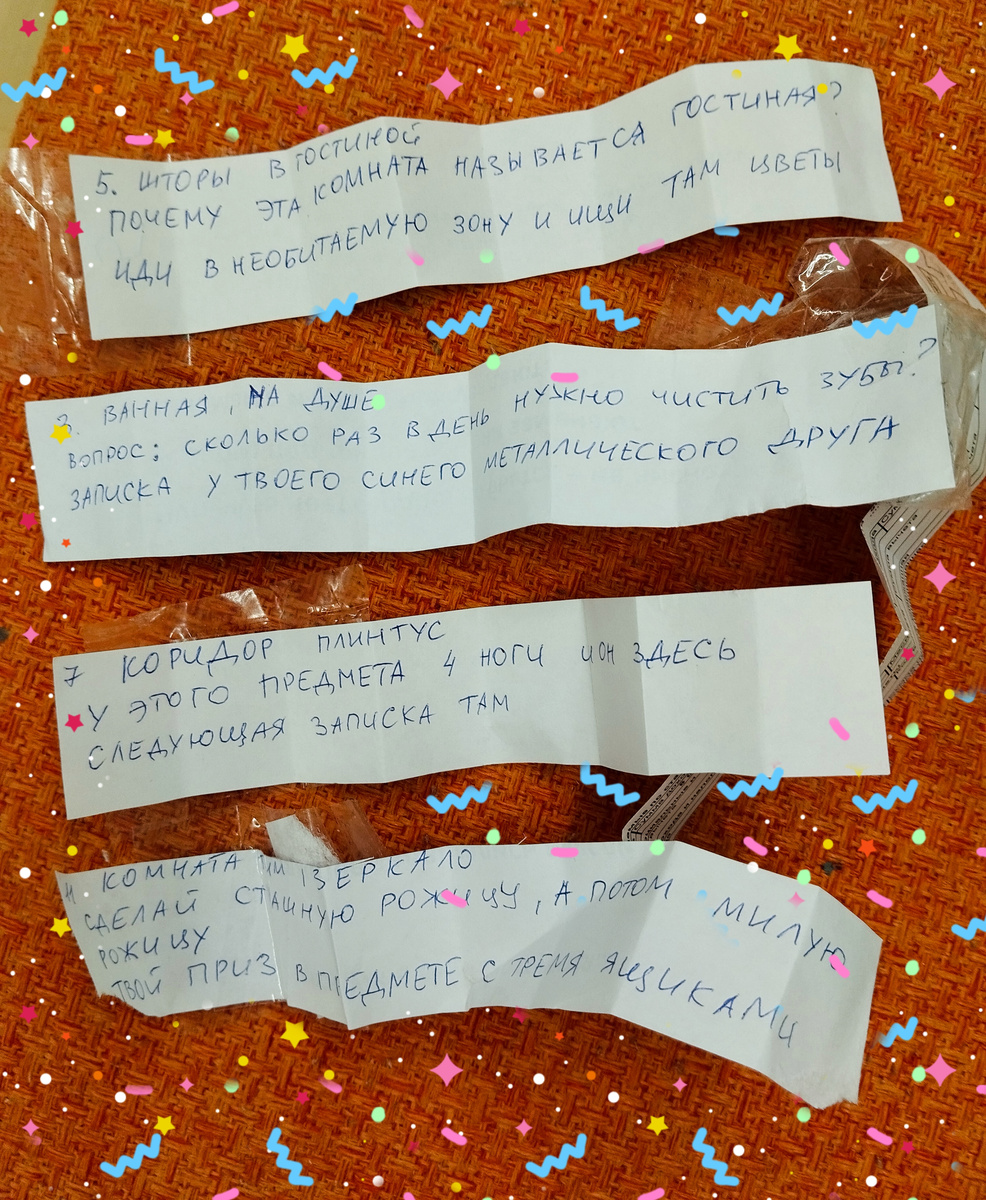 5. ШТОРЫ В ГОСТИНОЙ
ПОЧЕМУ ЭТА КОМНАТА НАЗЫВАЕТСЯ ГОСТИНАЯ?
ИДИ В НЕОБИТАЕМУЮ ЗОНУ И ИЩИ ТАМ ЦВЕТЫ
3. ВАННАЯ, НА ДУШЕ
ВОПРОС: СКОЛЬКО РАЗ В ДЕНЬ НУЖНО ЧИСТИТЬ ЗУБЫ?
ЗАПИСКА У ТВОЕГО СИНЕГО МЕТАЛЛИЧЕСКОГО ДРУГА
7 КОРИДОР ПЛИНТУС
У ЭТОГО ПРЕДМЕТА 4 НОГИ И ОН ЗДЕСЬ
СЛЕДУЮЩАЯ ЗАПИСКА ТАМ
КОМНАТА ЗЕРКАЛО
СДЕЛАЙ СТАШНУЮ РОЖИЦУ, А ПОТОМ МИЛУЮ
РОЖИЦУ
ТВОЙ ПРИЗ В ПРЕДМЕТЕ С ТРЕМЯ ЯЩИКАМИ